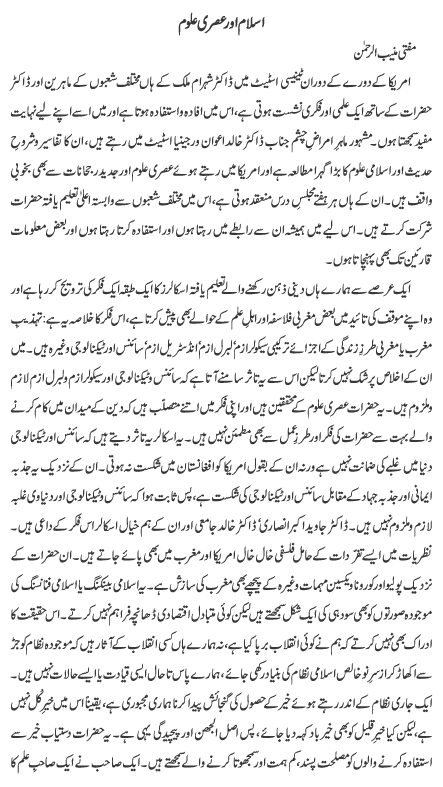 اسلام اور عصری علوم
مفتی منیب الرحمٰن
امریکا کے دورے کے دوران ٹینیسی اسٹیٹ میں ڈاکٹر شہرام ملک کے ہاں مختلف شعبوں کے ماہرین اور ڈاکٹر
حضرات کے ساتھ ایک علمی اور فکری نشست ہوتی ہے، اس میں افادہ و استفادہ ہوتا ہے اور میں اسے اپنے لیے نہایت
مفید سمجھتا ہوں۔ مشہور ماہرِ امراضِ چشم جناب ڈاکٹر خالد اعوان ورجینیا اسٹیٹ میں رہتے ہیں، ان کا تفاسیر و شروحِ
حدیث اور اسلامی علوم کا بڑا گہرا مطالعہ ہے اور امریکا میں رہتے ہوئے عصری علوم اور جدید رجحانات سے بھی بخوبی
واقف ہیں۔ ان کے ہاں ہر ہفتے مجلسِ درس منعقد ہوتی ہے، اس میں مختلف شعبوں سے وابستہ اعلیٰ تعلیم یافتہ حضرات
شرکت کرتے ہیں۔ اس لیے میں ہمیشہ ان سے رابطے میں رہتا ہوں اور استفادہ کرتا ہوں اور بعض معلومات
قارئین تک بھی پہنچاتا ہوں۔
ایک عرصے سے ہمارے ہاں دینی ذہن رکھنے والے تعلیم یافتہ اسکالرز کا ایک طبقہ ایک فکر کی ترویج کر رہا ہے اور
وہ اپنے موقف کی تائید میں بعض مغربی فلاسفہ اور اہلِ علم کے حوالے بھی پیش کرتا ہے، اس فکر کا خلاصہ یہ ہے: تہذیبِ
مغرب یا مغربی طرزِ زندگی کے اجزائے ترکیبی سیکولرازم‘ لبرل ازم‘ انڈسٹریل ازم‘ سائنس اور ٹیکنالوجی وغیرہ ہیں۔ میں
ان کے اخلاص پر شک نہیں کرتا لیکن اس سے یہ تاثر سامنے آتا ہے کہ سائنس و ٹیکنالوجی اور سیکولرازم و لبرل ازم لازم
و ملزوم ہیں۔ یہ حضرات عصری علوم کے محققین ہیں اور اپنی فکر میں اتنے متصلّب ہیں کہ دین کے میدان میں کام کرنے
والے بہت سے حضرات کی فکر اور طرزِ عمل سے بھی مطمئن نہیں ہیں۔ یہ اسکالر یہ تاثر دیتے ہیں کہ سائنس اور ٹیکنالوجی
دنیا میں غلبے کی ضمانت نہیں ہے ورنہ ان کے بقول امریکا کو افغانستان میں شکست نہ ہوتی۔ ان کے نزدیک یہ جذبۂ
ایمانی اور جذبۂ جہاد کے مقابل سائنس اور ٹیکنالوجی کی شکست ہے، پس ثابت ہوا کہ سائنس و ٹیکنالوجی اور دنیاوی غلبہ
لازم و ملزوم نہیں ہیں۔ ڈاکٹر جاوید اکبر انصاری‘ ڈاکٹر خالد جامعی اور ان کے ہم خیال اسکالر اس فکر کے داعی ہیں۔
نظریات میں ایسے تفردات کے حامل فلسفی خال خال امریکا اور مغرب میں بھی پائے جاتے ہیں۔ ان حضرات کے
نزدیک پولیو اور کورونا ویکسین مہمات وغیرہ کے پیچھے بھی مغرب کی سازش ہے۔ یہ اسلامی بینکنگ یا اسلامی فنانسنگ کی
موجودہ صورتوں کو بھی سود ہی کی ایک شکل سمجھتے ہیں لیکن کوئی متبادل اقتصادی ڈھانچہ فراہم نہیں کرتے۔ اس حقیقت کا
ادراک بھی نہیں کرتے کہ ہم نے کوئی انقلاب برپا کیا ہے، نہ ہمارے ہاں کسی انقلاب کے آثار ہیں کہ موجودہ نظام کو جڑ
سے اکھاڑ کر از سرِنو خالص اسلامی نظام کی بنیاد رکھی جائے، ہمارے پاس تاحال ایسی قیادت یا ایسے حالات نہیں ہیں۔
ایک جاری نظام کے اندر رہتے ہوئے خیر کے حصول کی گنجائش پیدا کرنا ہماری مجبوری ہے، یقیناً اس میں خیرِ کُل نہیں
ہے، لیکن کیا خیرِ قلیل کو بھی خیرباد کہہ دیا جائے، پس اصل الجھن اور پیچیدگی یہی ہے۔ یہ حضرات دستیاب خیر سے
استفادہ کرنے والوں کو مصلحت پسند، کم ہمت اور سمجھوتا کرنے والے سمجھتے ہیں۔ ایک صاحب نے ایک صاحبِ علم کا